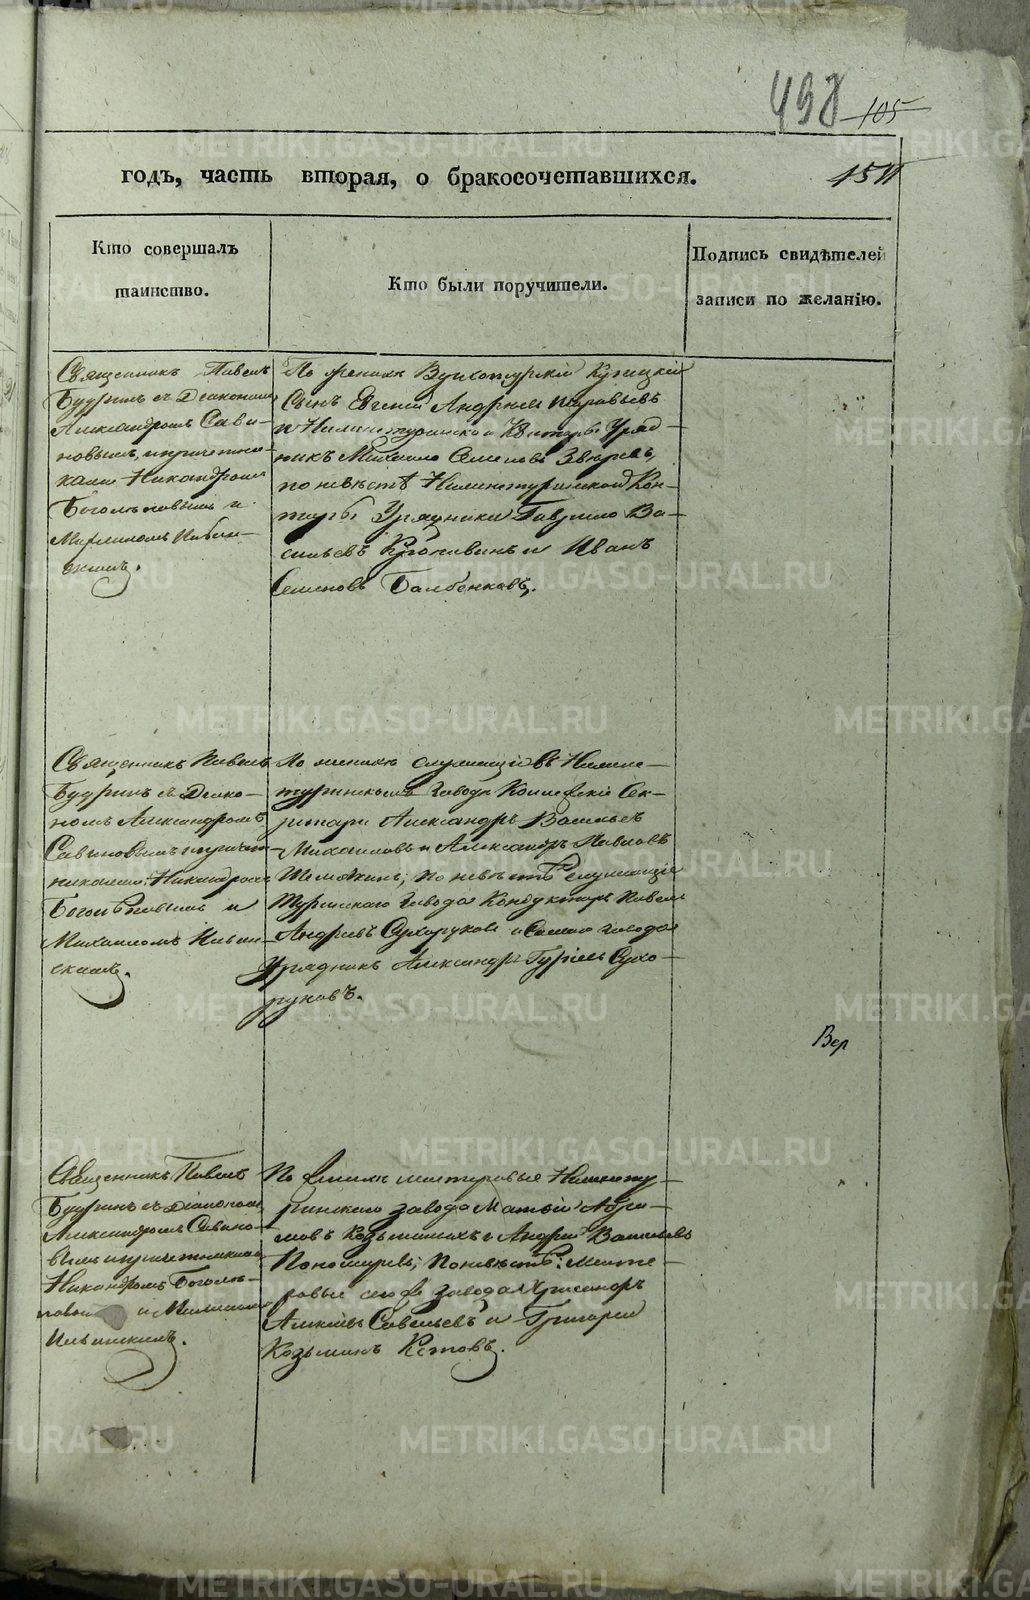 498 105
годъ, часть вторая, о бракосочетавшихся.
Кто совершалъ
таинство.
Кто были поручители.
Подпись свидѣтелей
записи по желанію.
Священникъ Павелъ
Будринъ съ Діакономъ
Александромъ Сави-
новымъ и причетни-
ками Никандромъ
и
По женихѣ Верхотурскій Купецкій
Сынъ Евгеній Андреевъ Муравьевъ
и Нижнетуринской Конторы Уряд-
никъ Михаило Семеновъ Звѣревъ,
по невѣстѣ Нижнетуринской Кон-
торы Урядники Гаврило Ва-
сильевъ и Иванъ
Семеновъ
Священникъ Павелъ
Будринъ съ Діако-
номъ Александромъ
Савиновымъ и причет-
никами: Никандромъ
и
Михаиломъ Ильин-
скимъ.
По женихѣ служащіе въ Нижне-
туринскомъ заводѣ Коллежскій Сек-
ретарь Александръ Васильевъ
Михаиловъ и Александръ Павловъ
по невѣстѣ служащіе
Туринскаго завода Кондукторъ Павелъ
Андреевъ Сухоруковъ и завода
Урядникъ Александръ Гурьевъ Сухо-
руковъ.
Вер
Священникъ Павелъ
Будринъ съ Діакономъ
Александромъ Савино-
вымъ и причетниками
Никандромъ Боголѣ-
повымъ и Михаиломъ
Ильинскимъ.
По женихѣ мастеровые Нижнету-
ринскаго завода Матвѣй Абра-
мовъ и Андрей Васильевъ
Пономаревъ; по невѣстѣ: масте-
ровые сего завода
Савельевъ и Григорій
Козьминъ
METRIKI.GASO-URAL.RU